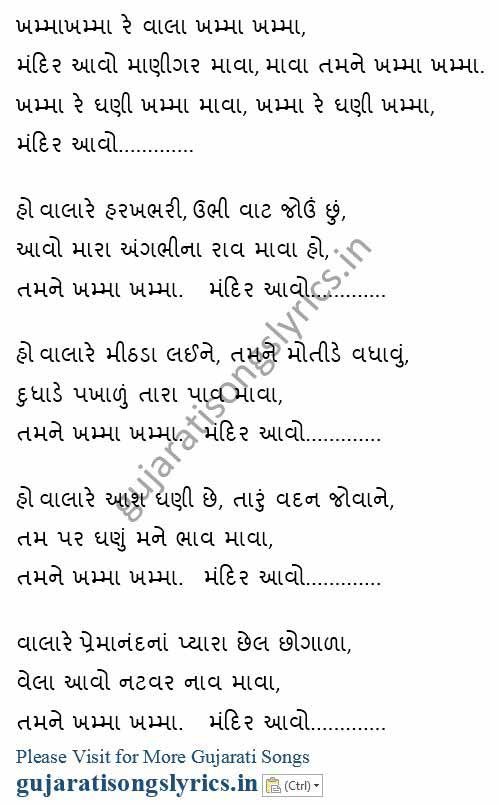 ખમ્માખમ્મા રે વાલા ખમ્મા ખમ્મા,
મંદિર આવો માણીગર માવા, માવા તમને ખમ્મા ખમ્મા.
ખમ્મા રે ઘણી ખમ્મા માવા, ખમ્મા રે ઘણી ખમ્મા,
મંદિર આવો.............
હો વાલારે હરખભરી, ઉભી વાટ જોઉં છું,
આવો મારા અંગભીના રાવ માવા હો,
તમને ખમ્મા ખમ્મા. મંદિર આવો.............
હો વાલારે મીઠડા લઈને, તમને મોતીડે વધાવું,
દુધાડે પખાળું તારા પાવ માવા,
તમને ખમ્મા ખમ્મા. મંદિર આવો.............
હો વાલારે આશ ઘણી છે, તારું વદન જોવાને,
તમ પર ઘણું મને ભાવ માવા,
તમને ખમ્મા ખમ્મા. મંદિર આવો.............
વાલારે પ્રેમાનંદનાં પ્યારા છેલ છોગાળા,
વેલા આવો નટવર નાવ માવા,
તમને ખમ્મા ખમ્મા. મંદિર આવો.............
Please Visit for More Gujarati Songs
gujaratisongslyrics.in (Ctrl)
gujaratisongslyrics.in